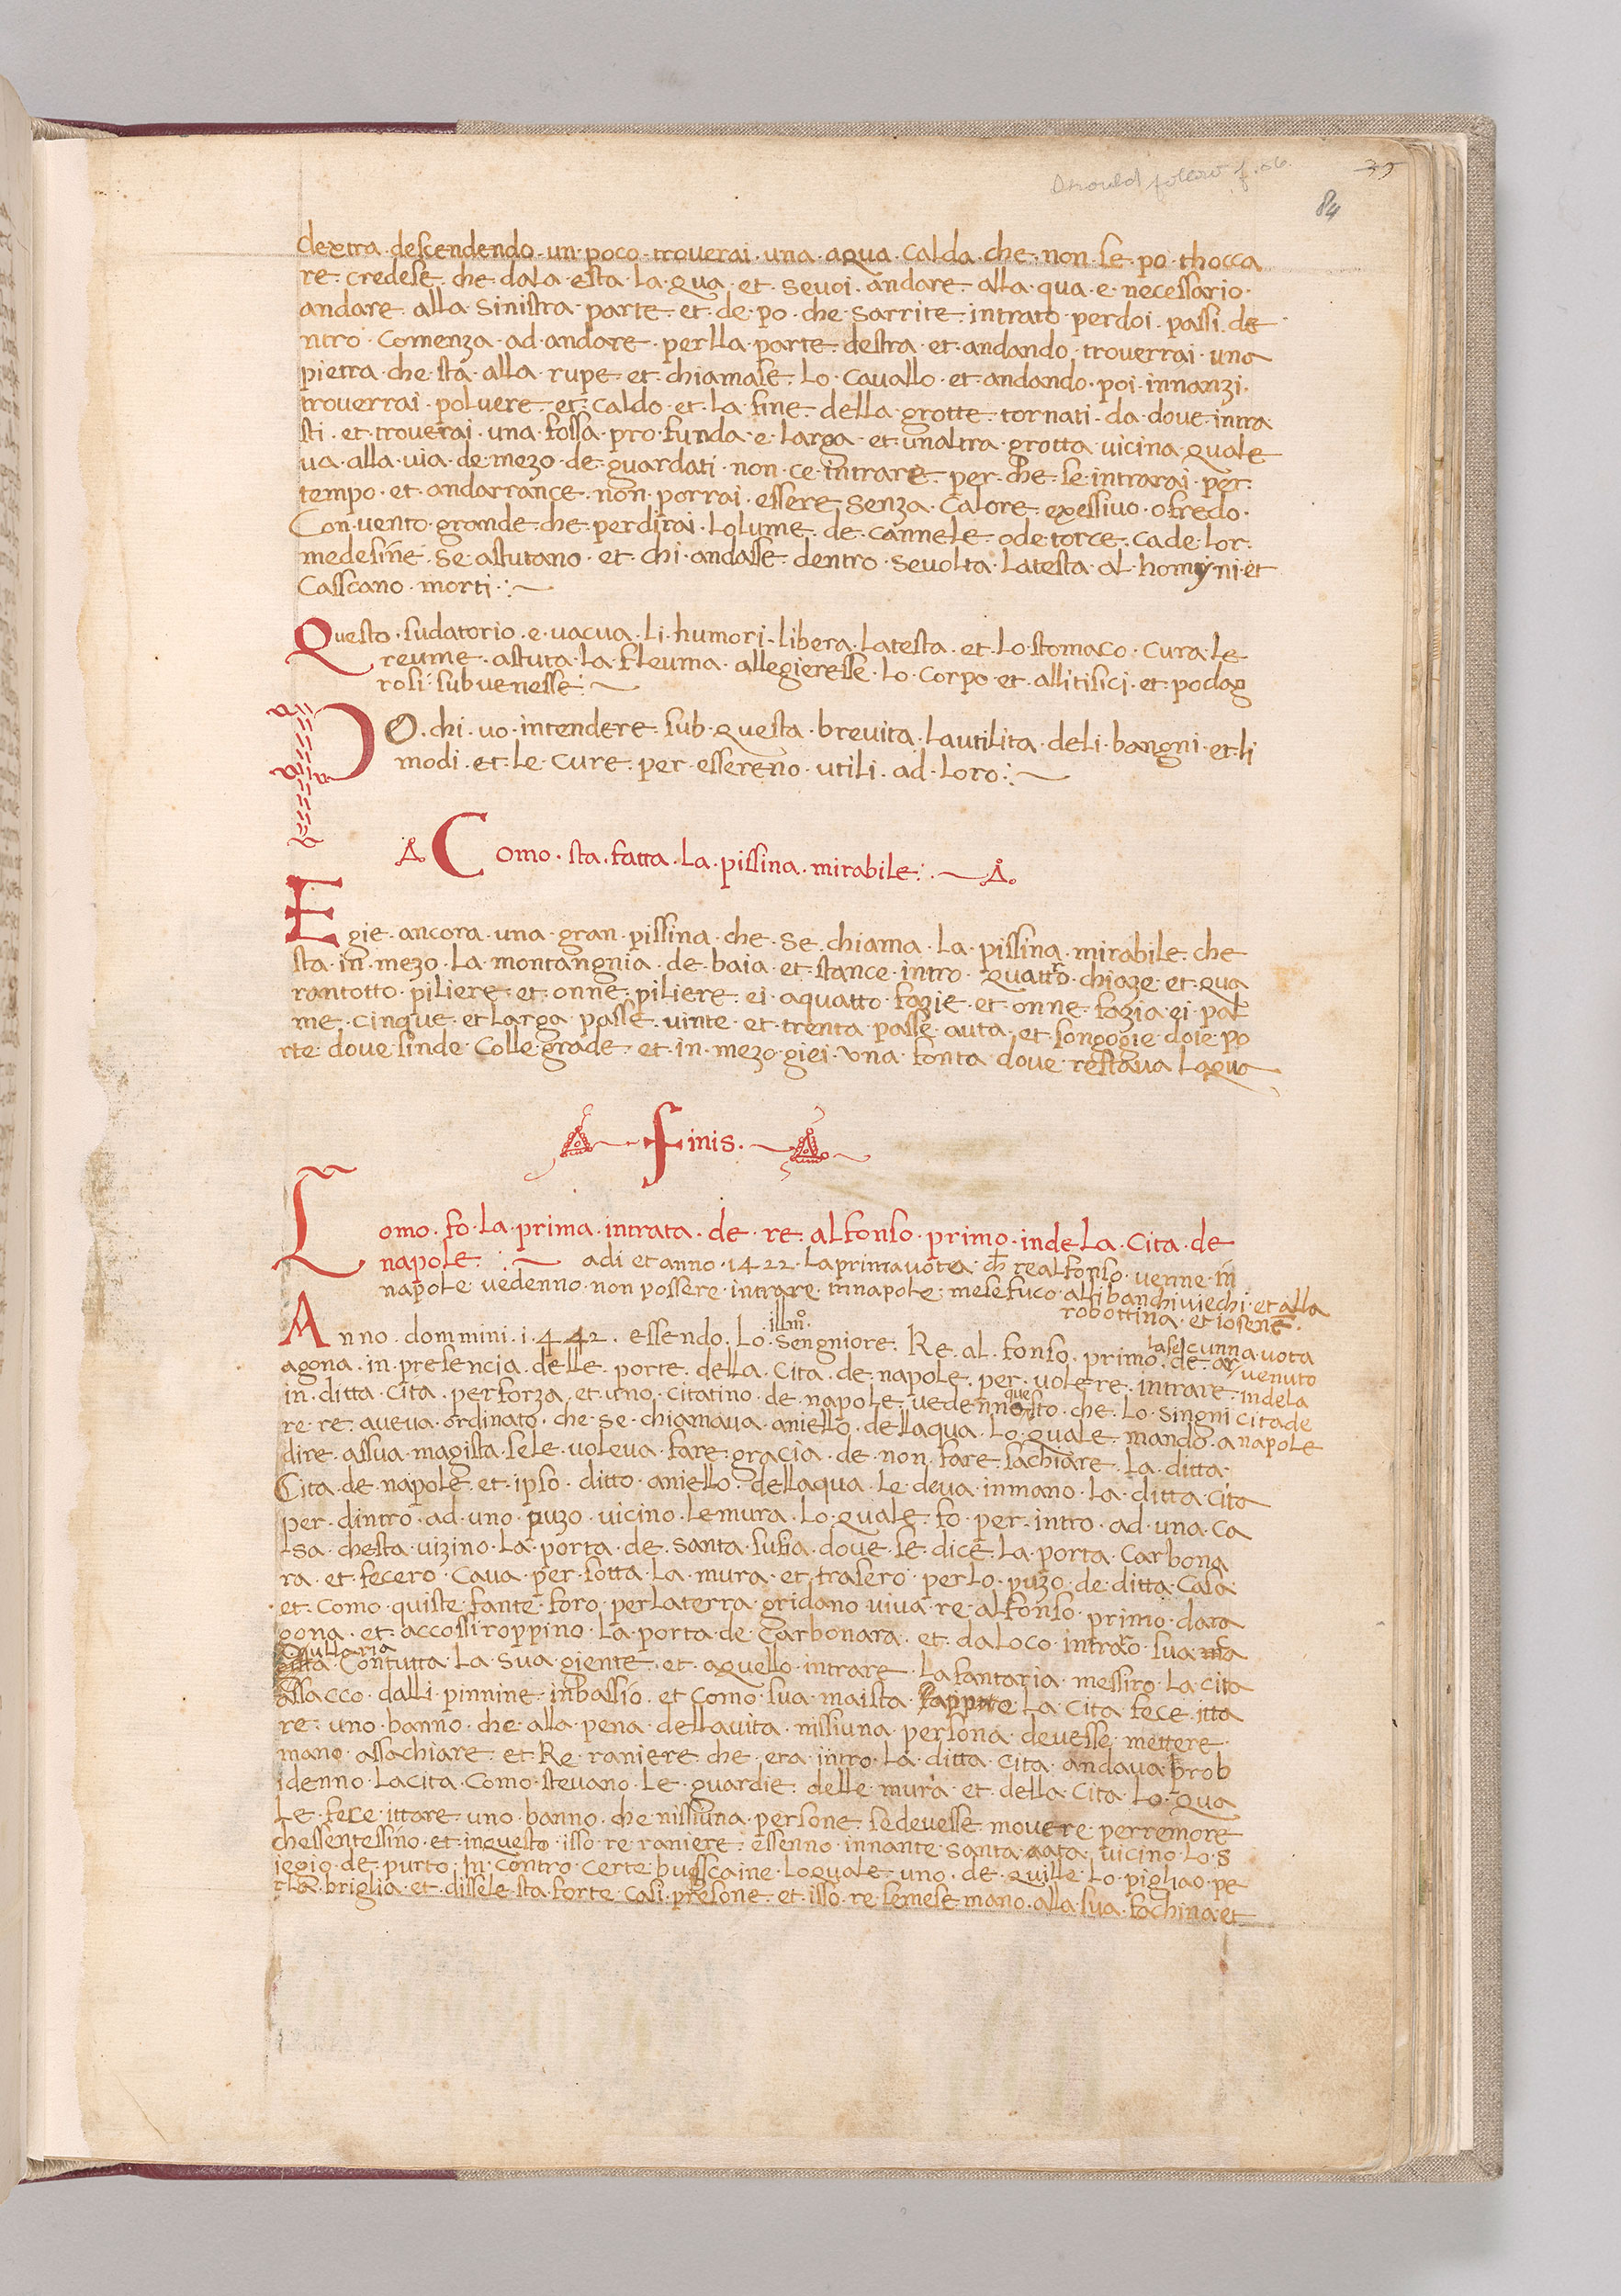 should follow f. 56.
35
84
dextra · descendendo · un · poco · trouerai · una · aqua · calda · che · non · se · po · thocca
re · credese · che · dala · esta · la · qua · et · sevoi · andare · alla · qua · e · necessario ·
andare · alla · sinistra · parte · et · de · po · che · sarrite · intrato · perdoi · passi · de
ntro · comenza · ad · andare · perlla · parte · destra · et · andando · trouerrai · una
pietra · che · sta · alla · rupe · et · chiamase · lo · cauallo · et · andando · poi · innanzi ·
trouerrai · poluere · et · caldo · et · la · fine · della · grotte · tornati · da · dove · intra
sti · et · trouerai · una · fossa · pro · funda · e · larga · et · unaltra · grotta · vicina · quale
ua · alla · uia · de · mezo · de · guardati · non · ce · intrare · per · che · se · intrarai · per ·
tempo · et · andarrance · non · porrai · essere · senza · calore · exessiuo · o fredo ·
Con · vento · grande · che · perdirai · lolume · de · cannele · ode · torce · cade · lor ·
medesine · se astutano · et · chi · andasse · dentro · sevolta · latesta · al · homyni · et
Casscano · morti :~
Questo · sudatorio · e · vacua · li · humori · libera · latesta · et · lo stomaco · cura · le
reume · astuta · la · fleuma · allegieresse · lo · corpo · et · alli tisici · et · podag
rosi · subuenesse :~
O · chi · uo · intendere · sub · questa · breuita · lautilita · deli · bangni · et · li
modi · et · le · cure · per · essereno · utili · ad · loro :~
Como · sta · fatta · la · pissina · mirabile :~
Egie · ancora · una · gran · pissina · che · se · chiama · la · pissina · mirabile · che
sta · in · mezo · la · montangnia · de · baia · et · stance · intro · quattro · chiaze · et · qua
rantotto · piliere · et · onne · piliere · ei · aquatto · fazie · et · onne · fazia · ei · pal
me · cinque · et larga · passe · vinte · et · trenta · passe · auta · et · songogie · doie · po
rte · dove · sinde · colle · grade · et · in · mezo · giei · una · fonta · dove · restaua laqua
finis ·
Como · fo · la · prima · intrata · de · re · alfonso · primo · inde · la · cita · de
napole :~ adi et anno · 1422 · la prima vota · ch̄ re alfonso · venne · in
napole · vedenno · non possere · intrare · in napole · mese fuco · alli banchi viechi · et alla
robottina · et iosene ·
Anno · dommini · 1 · 4 · 42 · essendo · lo · illm̊ · Sengniore · Re · al · fonso · primo · de · ar
la secunna vota
agona · in · presencia · delle · porte · della · cita · de · napole · per · volere · intrare
venuto
in · ditta · cita · perforza · et · uno · citatino · de · napole · vedenno · questo · che · lo · singni
indela
re · re · aveva · ordinato · che · se · chiamava · aniello · dellaqua · lo · quale · mando · a
citade
napole
dire · assua · magista · sele · voleva · fare · gracia · de · non · fare · sachiare · la · ditta ·
Cita · de · napole · et · ipso · ditto · aniello · dellaqua · le · deva · inmano · la · ditta · cita
per · dintro · ad · uno · puzo · vicino · lemura · lo · quale · fo · per · intro · ad · una · ca
sa · chesta · vizino · la · porta · de · santa · sufia · dove · se · dice · la · porta · carbona
ra · et · fecero · cava · per · sotta · la · mura · et · trasero · perlo · puzo · de · ditta · casa ·
et · como · quiste · fante · foro · perlaterra · gridano · viva · re · alfonso · primo · dara
gona · et · accossi roppino · la · porta · de · Carbonara · et · da loco · intraro · sua
Contutta · la · sua · giente · et · aquello · intrare · la fantaria · messiro · la cita
assacco · dalli · pinnine · inbassio · et · como · sua · maista · la · cita · fece · itta
re · uno · banno · che · alla · pena · dellavita · nissiuna · persona · devesse · mettere ·
mano · assachiare · et · Re · raniere · che · era · intro · la · ditta · cita · andava prob
idenno · lacita · como · stevano · le · guardie · delle · mura · et · della · cita · lo · qua
le · fece · ittare · uno · banno · che · nissiuna · persone · sedevesse · movere · perremore
chessentessino · et · inquesto · isso · re · raniere · essenno · innante · santa · aata · vicino · lo · s
iegio · de · purto · in · contro · certe · busscaine · loquale · uno · de · quille · lo · pigliao · pe
rla · briglia · et · dissele · sta · forte · casi · presone · et · isso · re · semese · mano · alla · sua · fachina · et